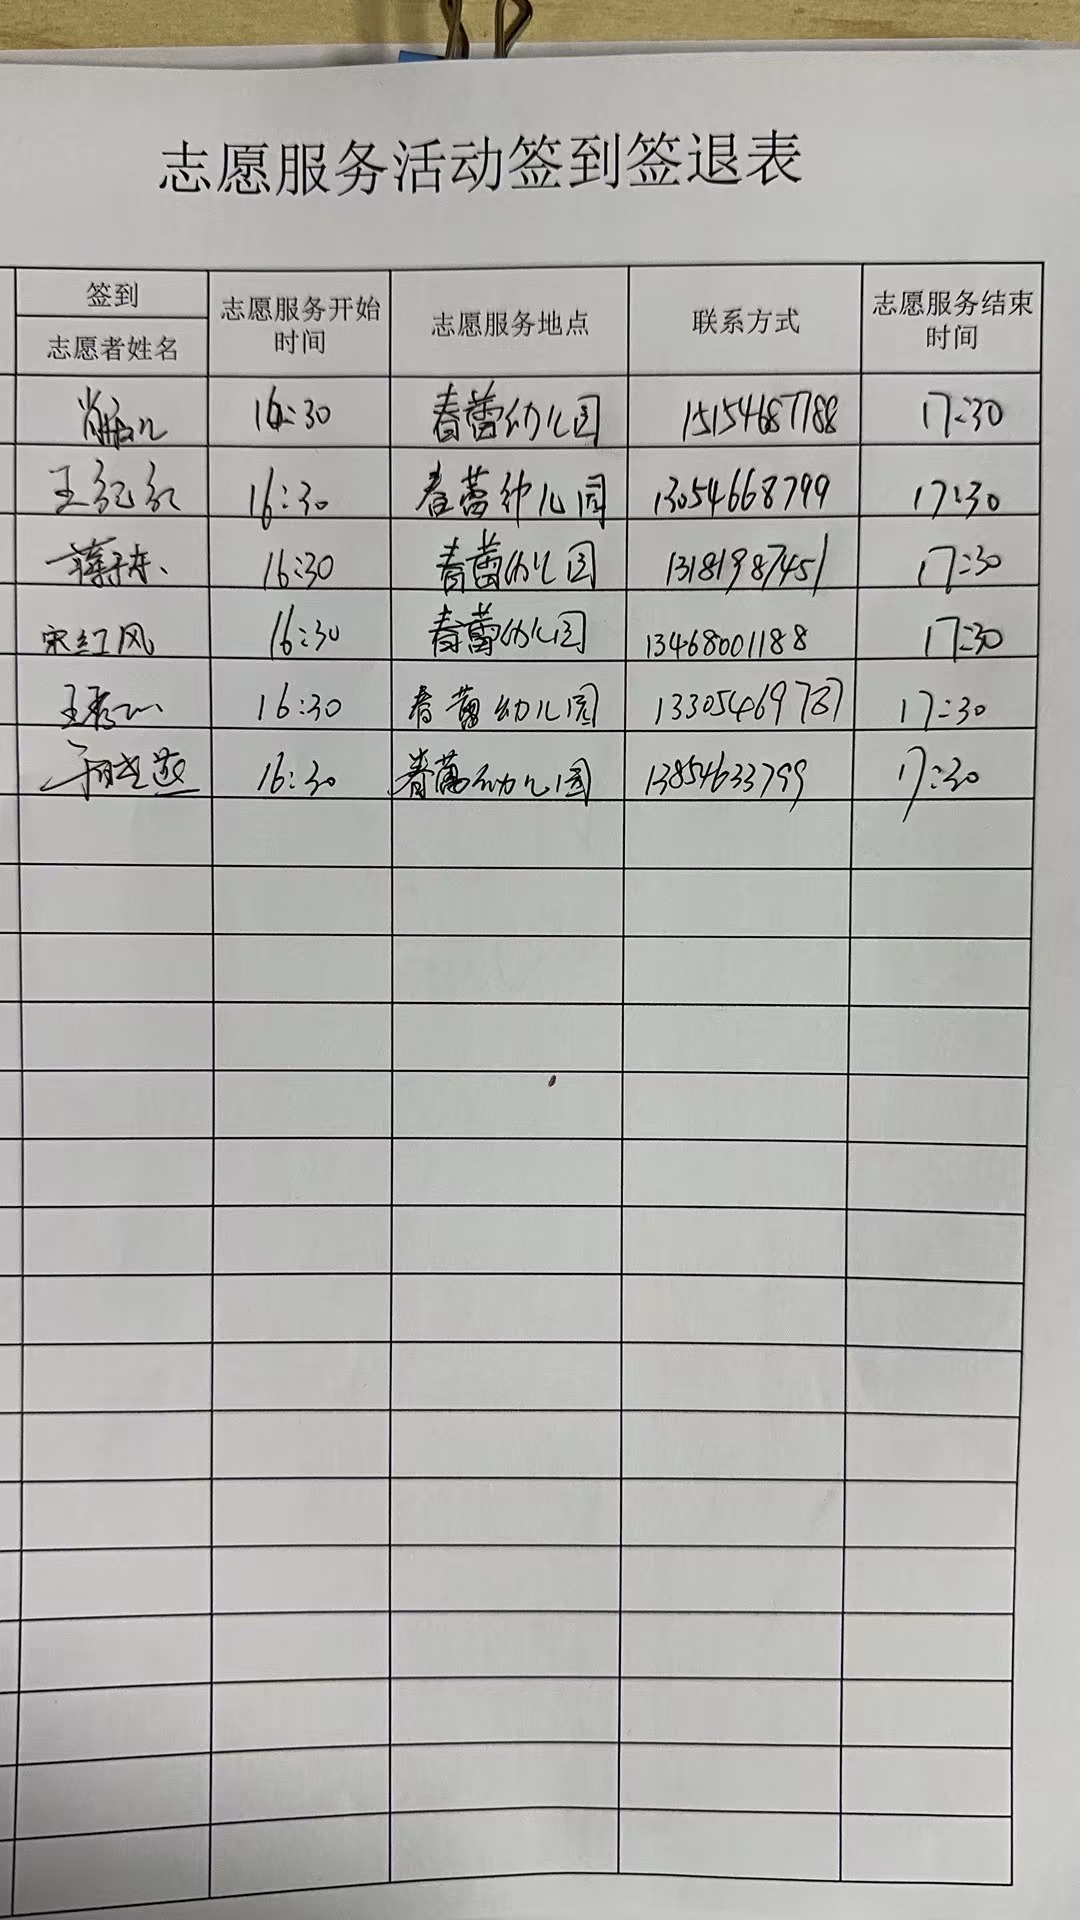 志愿服务活动签到签退表
签到
志愿者姓名 志愿服务开始时间 志愿服务地点 联系方式 志愿服务结束时间
16:30 春蕾幼儿园 15154687188 17:30
王纪红 16:30 春蕾幼儿园 13054668799 17:30
16:30 春蕾幼儿园 13181987451 17:30
宋红风 16:30 春蕾幼儿园 13468001188 17:30
16:30 春蕾幼儿园 13305469787 17:30
16:30 春蕾幼儿园 13854633799 17:30